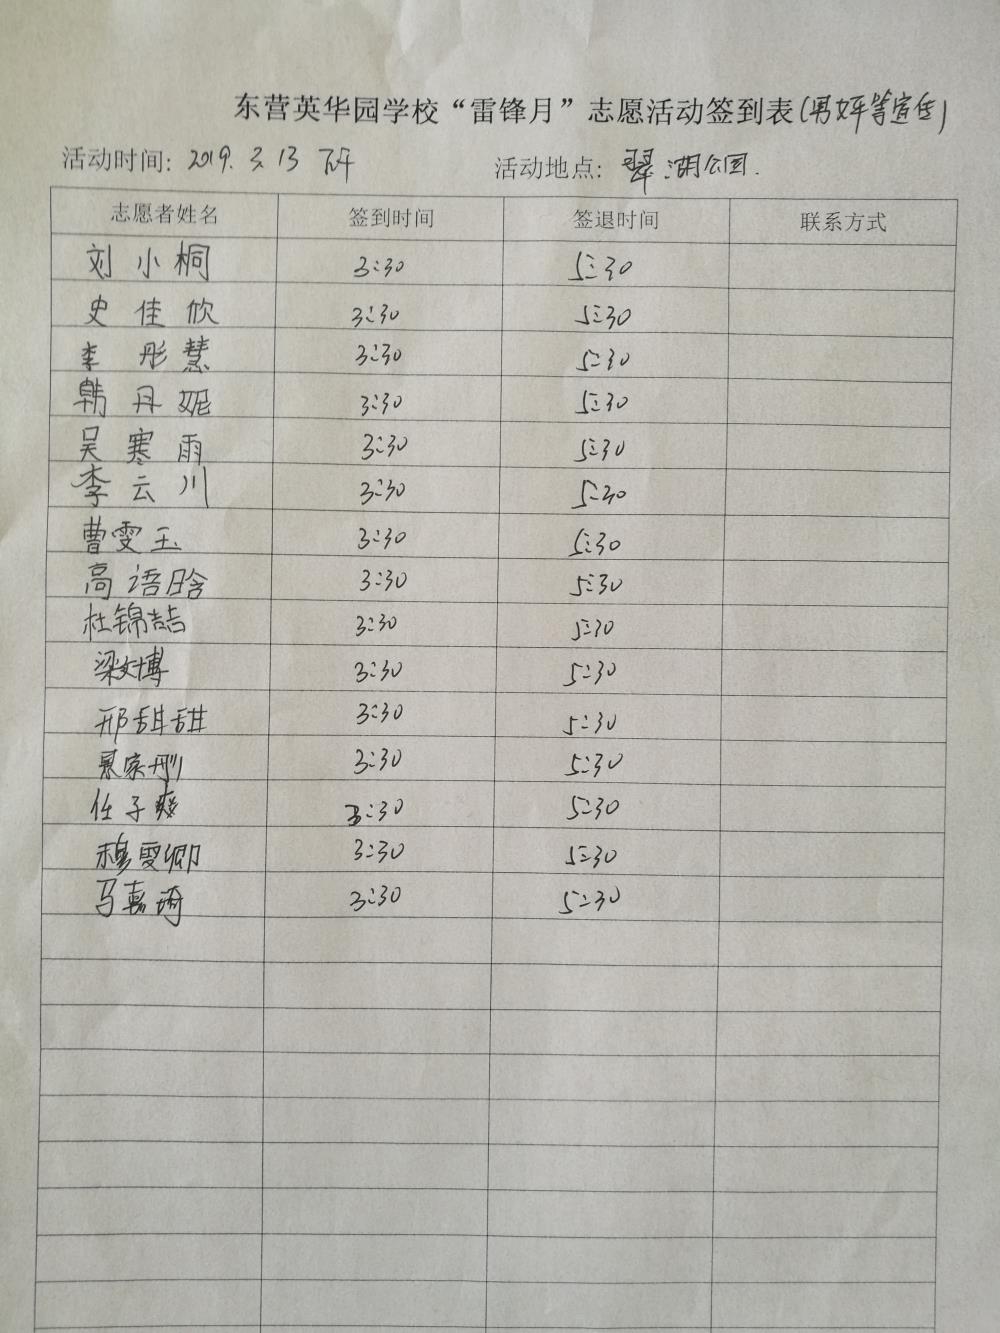 东营英华园学校“雷锋月”志愿活动签到表(男女平等宣传)
活动时间: 2019.3.13 下午 活动地点: 翠湖公园.
志愿者姓名 签到时间 签退时间 联系方式
刘小桐 3:30 5:30
史佳欣 3:30 5:30
李彤慧 3:30 5:30
韩丹妮 3:30 5:30
吴寒雨 3:30 5:30
李云川 3:30 5:30
曹雯玉 3:30 5:30
高语晗 3:30 5:30
杜锦喆 3:30 5:30
梁文博 3:30 5:30
邢甜甜 3:30 5:30
家彤 3:30 5:30
任子爽 3:30 5:30
穆雯卿 3:30 5:30
马嘉琦 3:30 5:30